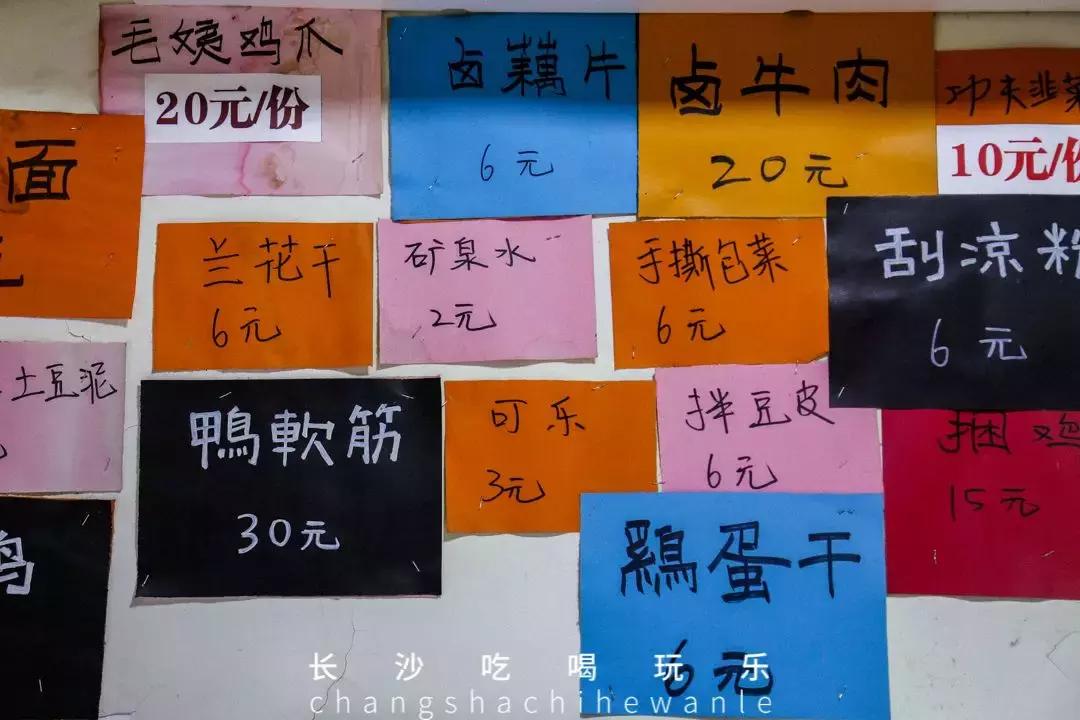 毛姨鸡爪
20元/份
卤藕片
6元
卤牛肉
20元
功夫韭菜
10元/份
面
兰花干
6元
矿泉水
2元
手撕包菜
6元
刮凉粉
6元
土豆泥
鴨軟筋
30元
可乐
3元
拌豆皮
6元
捆鸡
15元
鷄蛋干
6元
长沙吃喝玩乐
changshachihewanle